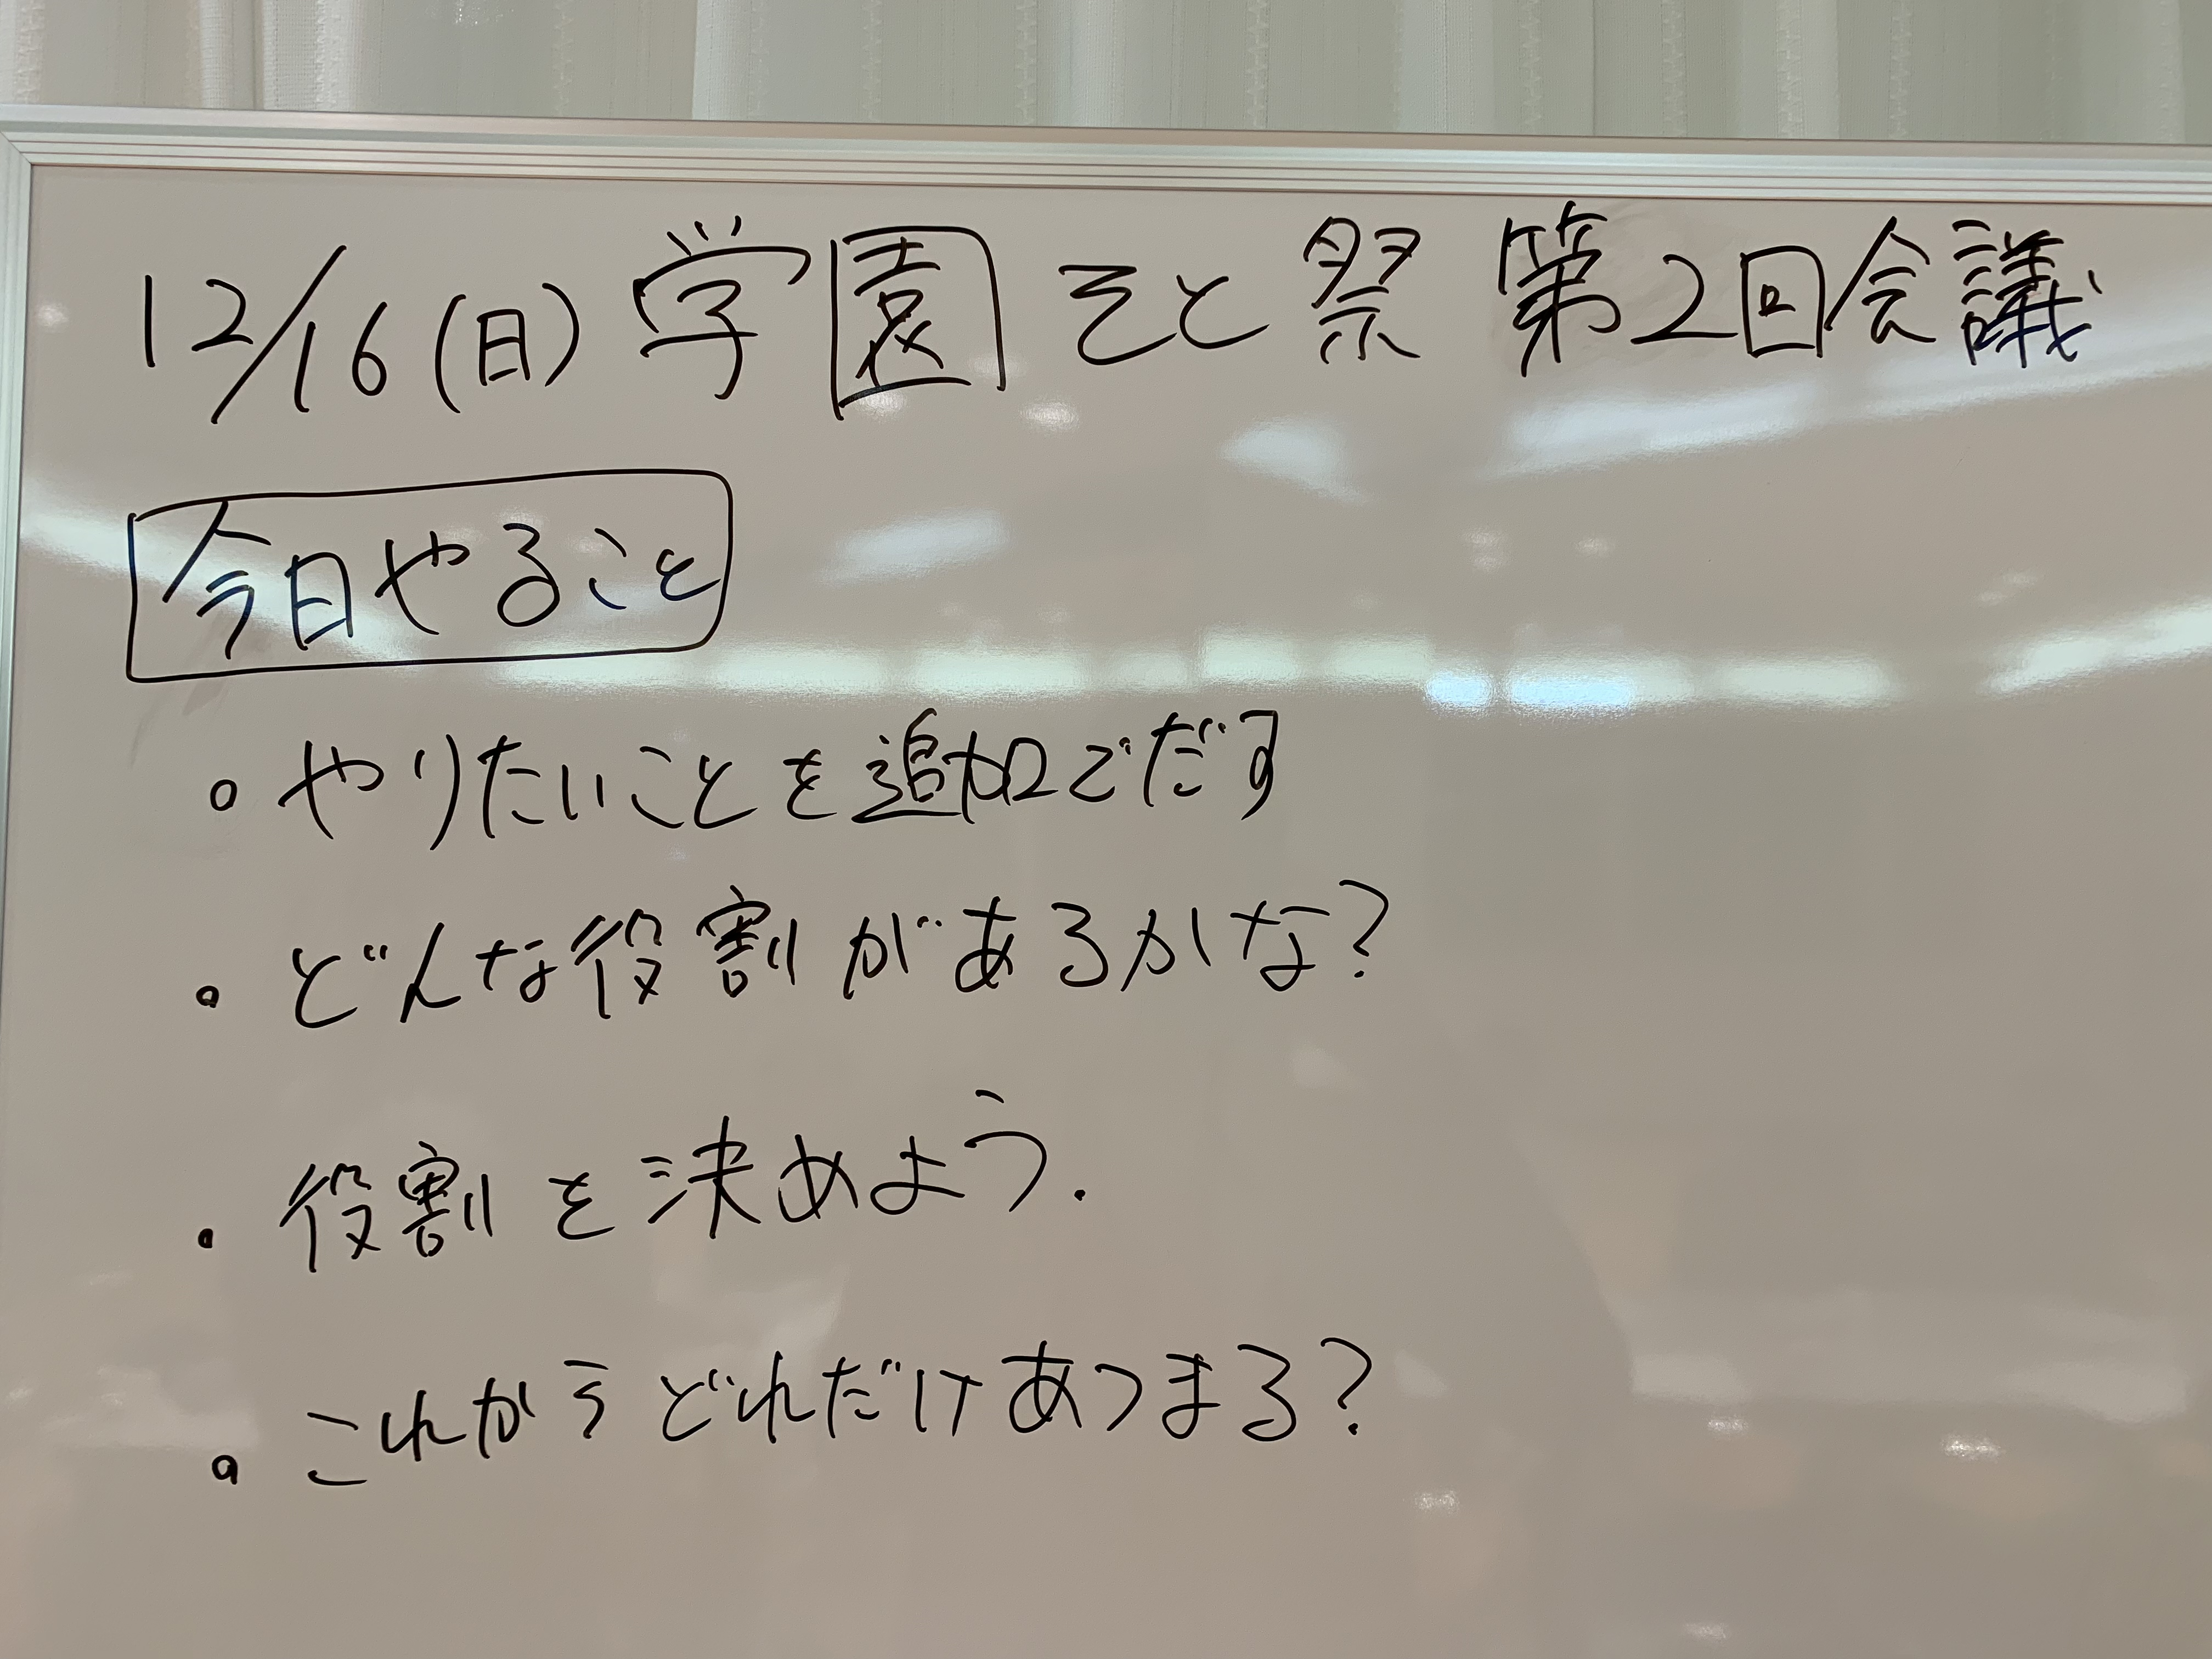 12/16(日) 学園そと祭 第2回会議
今日やること
。やりたいことを追加でだす
。どんな役割があるかな?
。役割を決めよう.
。これからどれだけあつまる?